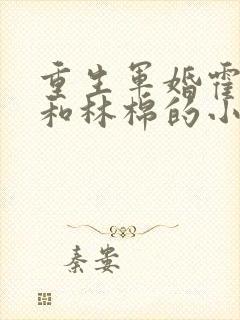 重生军婚霍
和林棉的小
秦娄